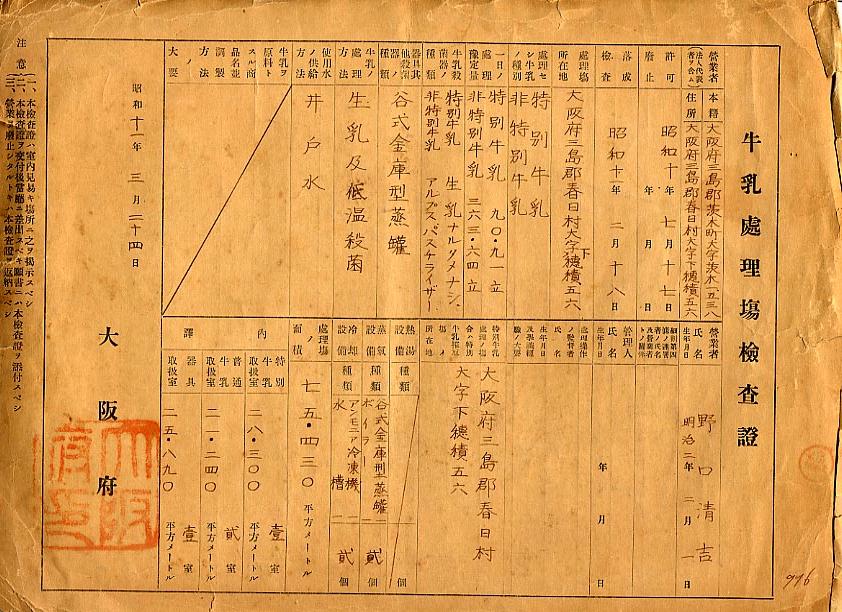 牛乳處理場檢査證
營業者
(法人代表者ヲ含ム)
本籍
大阪府三島郡茨木町大字茨木一五三八
住所
大阪府三島郡春日村大字下穗積五六
許可
昭和十年七月十七日
廢止
年月日
落成檢査
昭和十一年二月十八日
處理場所在地
大阪府三島郡春日村大字下穗積五六
處理セシ牛乳ノ種別
特別牛乳
非特別牛乳
一日ノ處理豫定量
特別牛乳 九〇・九一立
非特別牛乳 三六三・六四立
牛乳殺菌器ノ種類
特別牛乳 生乳ナルタメナシ
非特別牛乳 アルプスパスケライザー
其他殺菌器具ノ種類
谷式金庫型蒸罐
牛乳ノ處理方法
生乳及低温殺菌
使用水ノ供給方法
井戸水
牛乳ヲ原料トスル商品名竝調製ノ方法大要
營業者
氏名
野口清吉
生年月日
明治二年二月一日
管理人
氏名
生年月日
年月日
處理操作ノ監督者
氏名
生年月日
特別牛乳處理ノ場合ハ特別牛乳搾取場ノ所在地
大阪府三島郡春日村
大字下穗積五六
熱湯設備
種類
個
蒸氣設備
種類
谷式金庫型蒸罐
ボイラー
貳個
冷却設備
種類
アンモニア冷凍機
水槽
貳個
處理場面積
七五・四三〇平方メートル
內譯
特別牛乳取扱室
二八・三〇〇平方メートル
壹室
普通牛乳取扱室
二一・二四〇平方メートル
貳室
器具取扱室
二五・八九〇平方メートル
壹室
昭和十一年三月二十四日
大阪府
注意
一、本檢査證ハ室內見易キ場所ニ之ヲ揭示スベシ
二、本檢査證ヲ交付後當廳ニ差出スベキ願書ニハ本檢査證ヲ添付スベシ
三、營業ヲ廢止シタルトキハ本檢査證ヲ返納スベシ
996